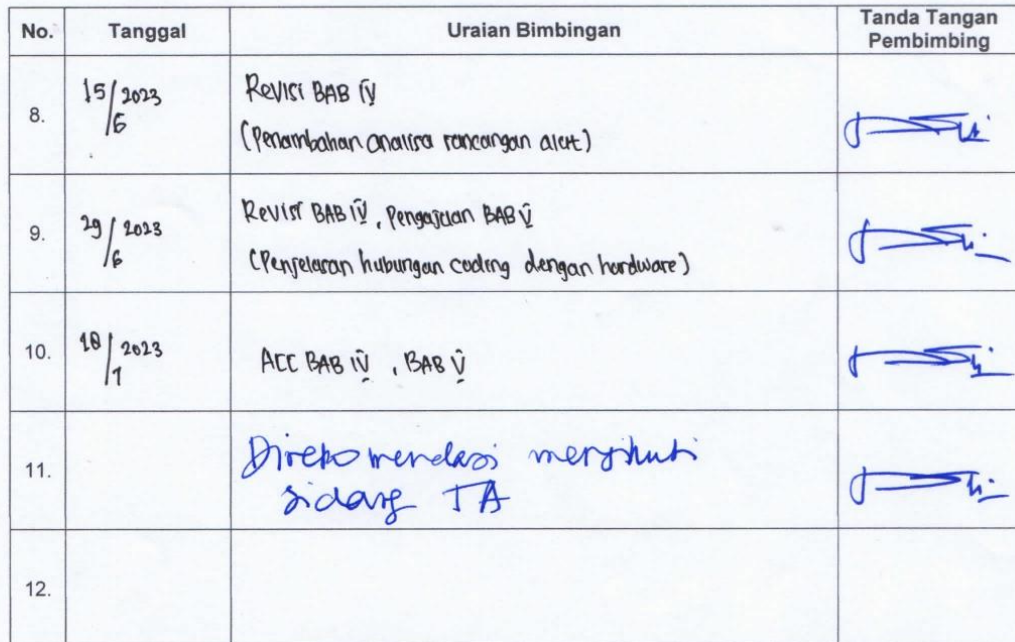 No. Tanggal Uraian Bimbingan Tanda Tangan Pembimbing
8. 15/6 2023 Revisi BAB IV
(Penambahan analisa rancangan alat)
9. 29/6 2023 Revisi BAB IV, Pengajuan BAB V
(Penjelasan hubungan coding dengan hardware)
10. 18/7 2023 ACC BAB IV, BAB V
11. Direkomendasi mengikuti
sidang TA
12.